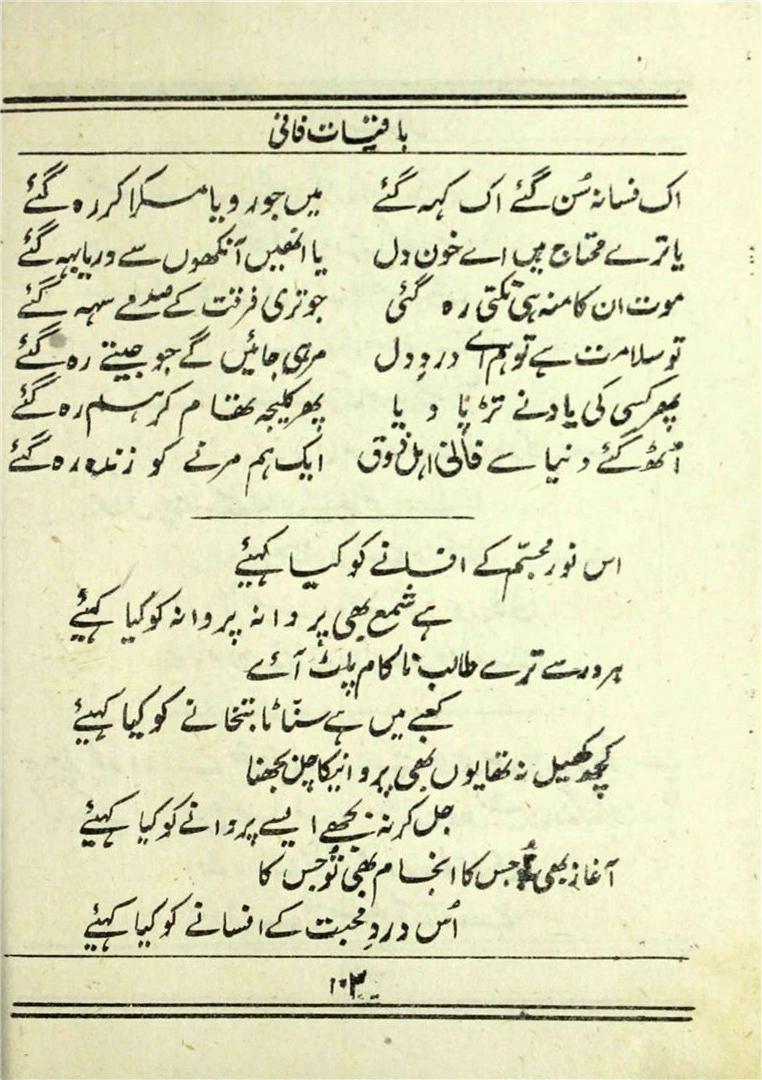 باقیات فانی
اک فسانہ سُن گئے اک کہہ گئے میں جو رویا مسکرا کر رہ گئے
یا ترے محتاج ہیں اے خون دل یا انھیں آنکھوں سے دریا بہہ گئے
موت ان کا منہ ہی تکتی رہ گئی جو تری فرقت کے صدمے سہہ گئے
تو سلامت ہے تو ہم اے دردِ دل مر ہی جائیں گے جو جیتے رہ گئے
پھر کسی کی یاد نے تڑپا دیا پھر کلیجہ تھام کر ہم رہ گئے
اُٹھ گئے دنیا سے فانی اہل ذوق ایک ہم مرنے کو زندہ رہ گئے
اس نور مجسّم کے افسانے کو کیا کہیئے
ہے شمع بھی پروانہ پروانہ کو کیا کہیئے
ہر در سے ترے طالب ناکام پلٹ آئے
کعبے میں ہے سنّاٹا بتخانے کو کیا کہیئے
کچھ کھیل نہ تھا یوں بھی پروانیکا جل بجھنا
جل کر نہ بجھے ایسے پروانے کو کیا کہیئے
آغاز بھی تُو جس کا انجام بھی تُو جس کا
اُس دردِ محبت کے افسانے کو کیا کہیئے
۱۰۳